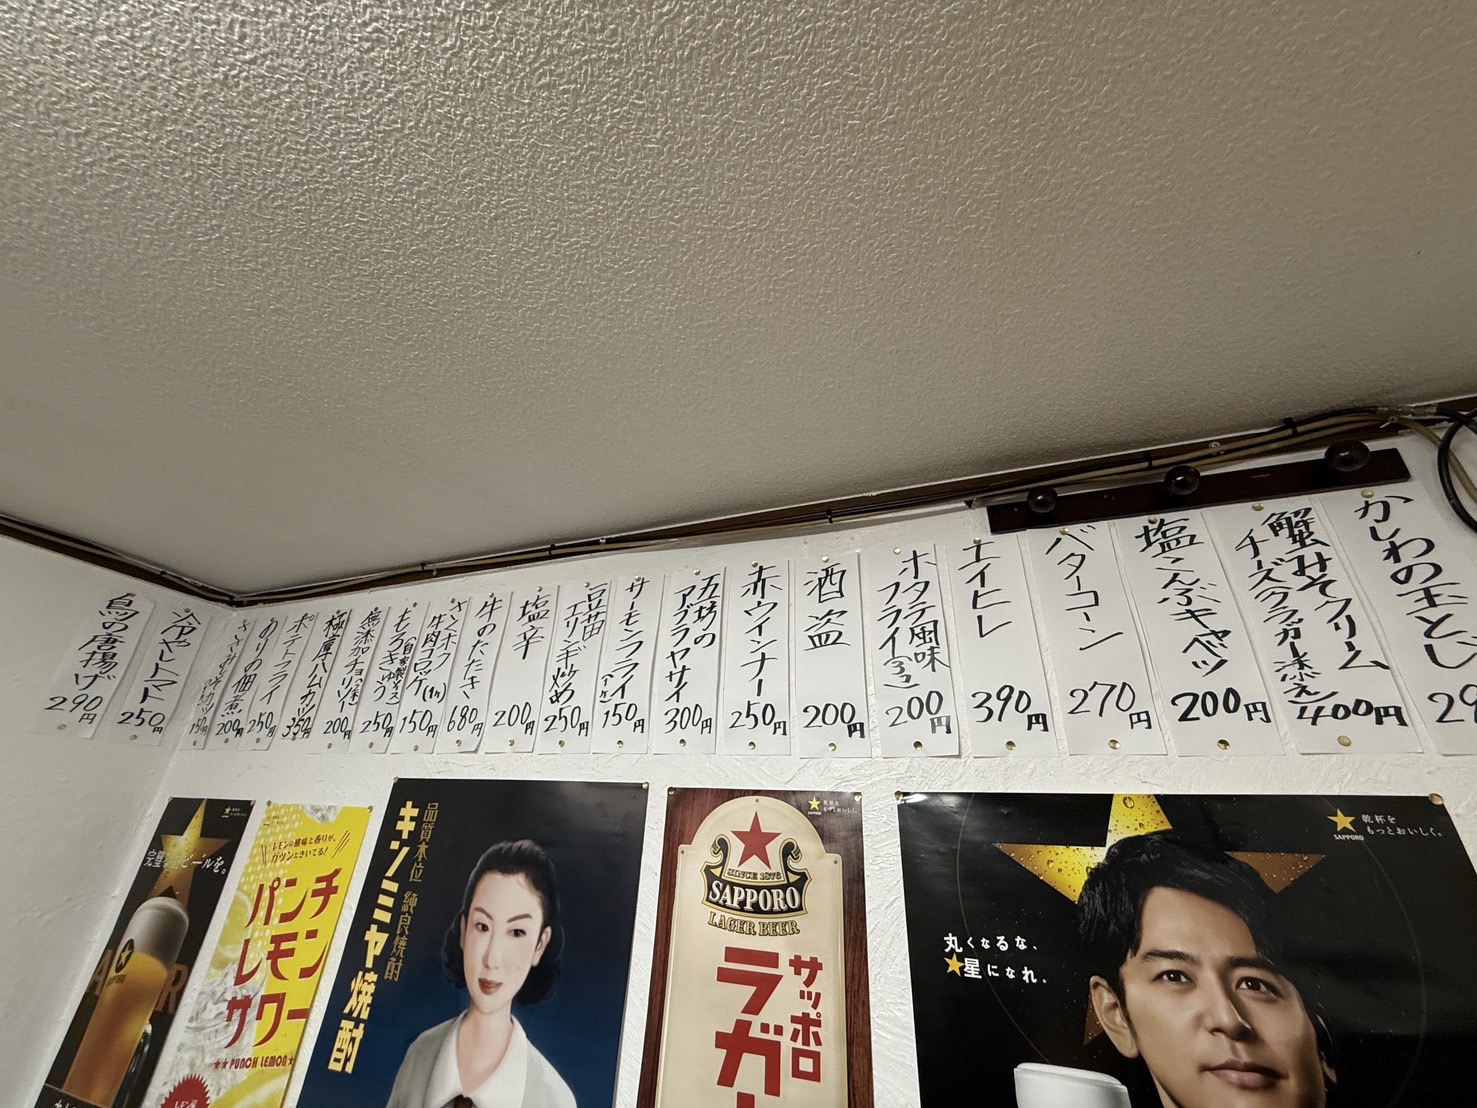 かしわの玉とじ
蟹みそクリーム
チーズクラッカー添え
400円
塩こんぶキャベツ
200円
バターコーン
270円
エイヒレ
390円
ホタテ風味
フライ(3コ)
200円
酒盗
200円
赤ウインナー
250円
300円
サーモンフライ
150円
豆苗
エリンギ炒め
250円
塩辛
200円
牛のたたき
680円
牛肉コロッケ
150円
もろきゅう
250円
無添加チョリソー
200円
極厚ハムカツ
350円
ポテトフライ
250円
ありの佃煮
200円
150円
冷やしトマト
250円
鳥の唐揚げ
290円
完璧なビールを。
レモンの酸味と香りが、
ガツンときいてる!
パンチ
レモン
サワー
★★PUNCH LEMON★
品質本位 純良焼酎
キンミヤ焼酎
乾杯を
もっとおいしく。
SINCE 1876
SAPPORO
LAGER BEER
サッポロ
ラガー
SAPPORO
乾杯を
もっとおいしく。
丸くなるな、
★星になれ。